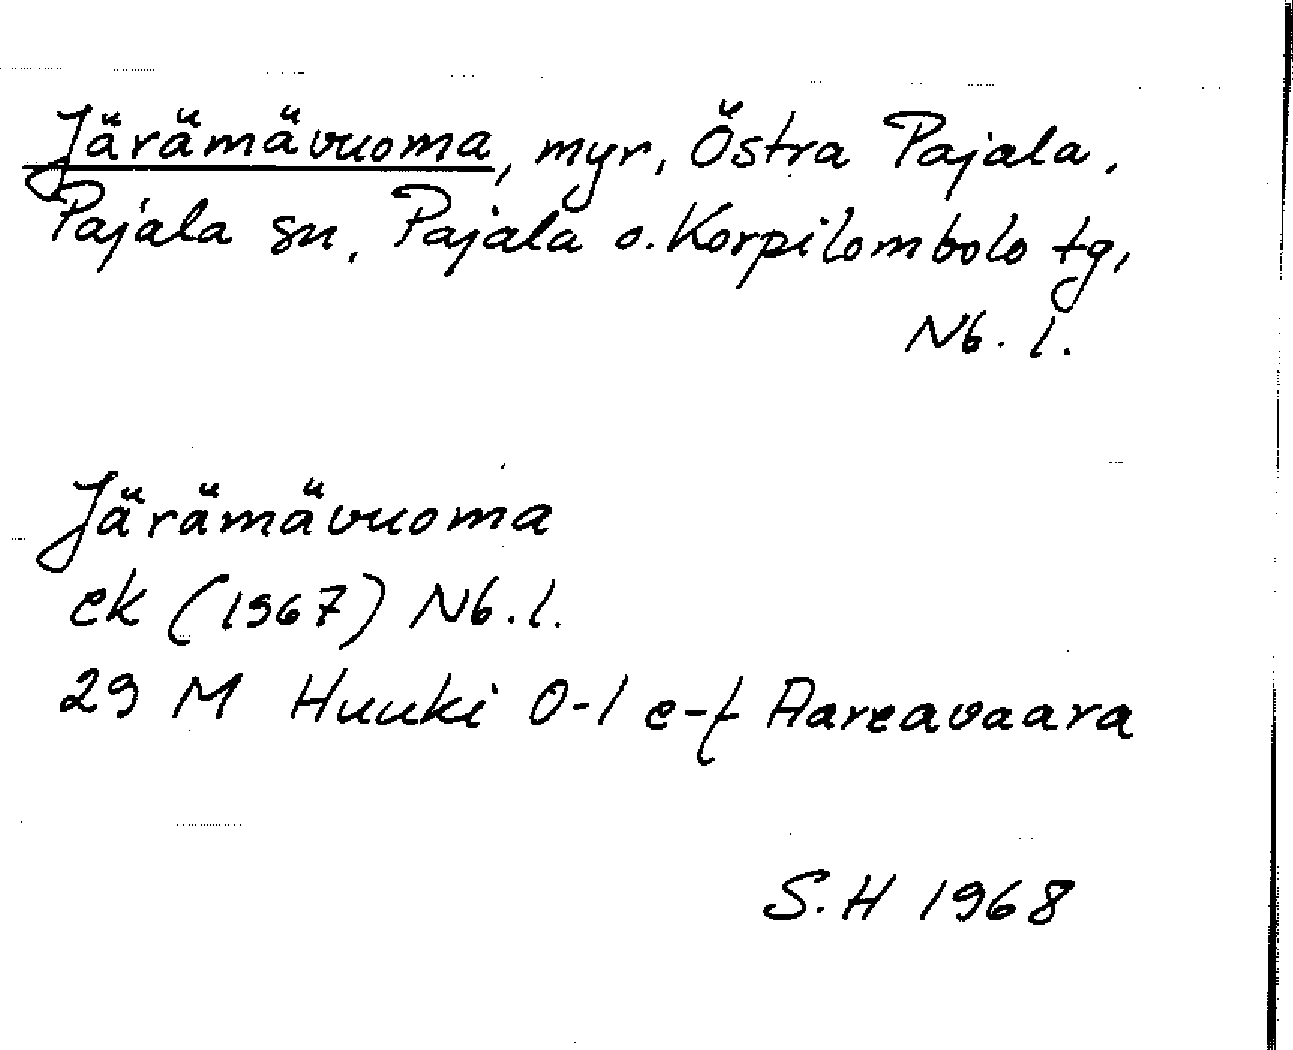 Järämävuoma, myr, Östra Pajala,
Pajala sn, Pajala o. Korpilombolo tg,
Nb. l.
Järämävuoma
ek (1967) Nb. l.
29 M Huuki 0-1 e-f Aareavaara
S.H 1968